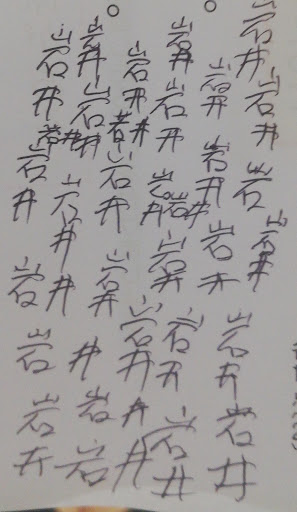 岩井岩井岩岩井岩井岩井
岩井岩井岩井
岩井岩井岩井岩井岩井岩井岩井
岩井岩井岩井岩井岩井
岩井岩井岩井
岩井岩井
岩井
岩井
岩井
岩井
岩井